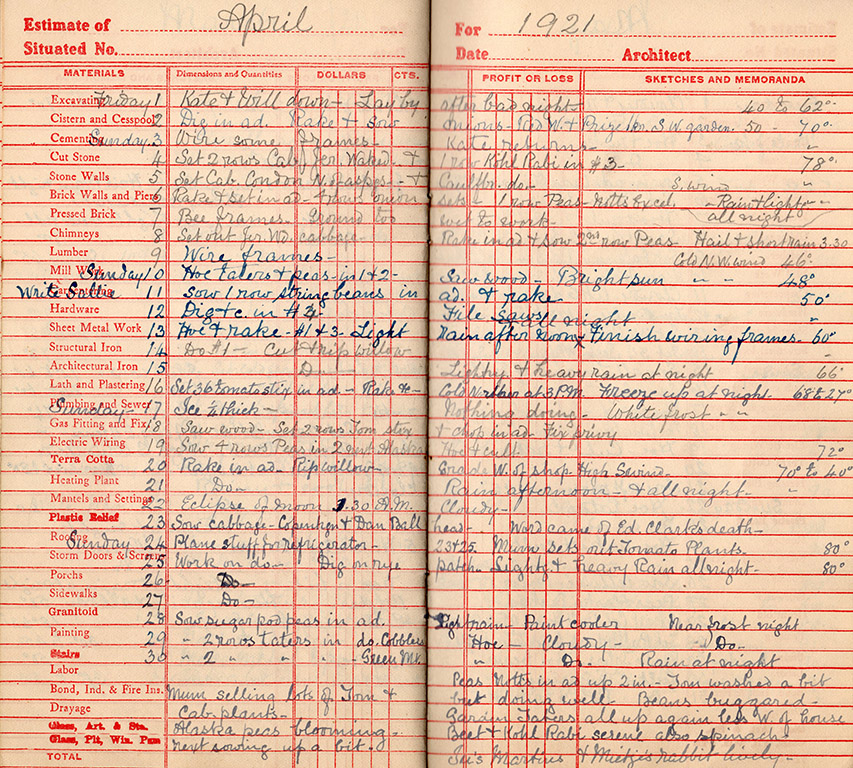 Estimate of April
Situated No.
For 1921
Date Architect
MATERIALS Dimensions and Quantities DOLLARS CTS. PROFIT OR LOSS SKETCHES AND MEMORANDA
Excavating Friday 1 Kate & Will down - Lay by after bad night 40 to 62°
Cistern and Cesspool 2 Dig in ad. Rake & sow onions - Red W. & Prize S.W. garden. 50 - 70°
Cementing Sunday 3 Wire some frames - Kate returns "
Cut Stone 4 Set 2 rows Cab. Jer. Waked. & 1 row Kohl Rabi in #3 - 78°
Stone Walls 5 Set Cab. London N. - & Caulflr. do - S. wind "
Brick Walls and Piers 6 Rake & set in ad 4 rows onion sets - 1 row Peas - Notts Excel. - Rain & light "
Pressed Brick 7 Bee frames. Ground too wet to work - all night
Chimneys 8 Set out Jer. Wd. cabbage - Rake in ad & sow 2nd row Peas Hail & short rain 3.30
Lumber 9 Wire frames - Cold N.W. wind 46°
Mill Work Sunday 10 Hoe taters & peas in 1 & 2 - Saw wood - Bright sun " " 48°
Write Sallie 11 Sow 1 row string beans in ad. & rake 50°
Hardware 12 Dig &c in #2 - File saws all night
Sheet Metal Work 13 Hoe & rake - #1 & 3 - Light Rain after noon Finish wiring frames. 60°
Structural Iron 14 Do #1 - Cut & rip willow "
Architectural Iron 15 Do - Lightng & heavy rain at night 66°
Lath and Plastering 16 Set 36 tomato stix in ad. - Rake &c - Cold N. at 3 P.M. Freeze up at night - 68 to 27°
Plumbing and Sewer Sunday 17 Ice ¼ thick - Nothing doing - White frost - " "
Gas Fitting and Fix. 18 Saw wood - Set 2 rows Tom stix & chop in ad - Fix privy
Electric Wiring 19 Sow 4 rows Peas in 2 Alaska Hoe & cult. 72°
Terra Cotta 20 Rake in ad. Rip willow - Grade N. of shop - High S. wind - 70° to 40°
Heating Plant 21 Do - Rain afternoon - & all night - "
Mantels and Settings 22 Eclipse of moon 1.30 A.M. Cloudy -
Plastic Relief 23 Sow cabbage - Copenhgn & Dan Ball head - Word came of Ed. Clark's death -
Roofing Sunday 24 Plane stuff for refrigerator - 23 & 25. Mum sets out Tomato Plants. 80°
Storm Doors & Screens 25 Work on do - Dig on rye patch - Lightg & heavy Rain all night - 80°
Porchs 26 Do -
Sidewalks 27 Do -
Granitoid 28 Sow sugar pod peas in ad. Light rain - Paint cooler Near frost night
Painting 29 " 2 rows taters in do. Cobblers Hoe - Cloudy - Do -
Stairs 30 " 2 " " " - Green Mt. " Do. Rain at night
Labor
Bond, Ind. & Fire Ins. Mum selling lots of Tom & Peas Notts in ad up 2 in - Tom washed a bit
Drayage Cab. plants - but doing well - Beans buggared -
Glass, Art. & Sta. Alaska peas blooming - Garden Taters all up again less W. of house
Glass, Plt, Win. Pam next sowing up a bit. Beet & Kohl Rabi serene also spinach
TOTAL Martins & Mickje's rabbit lively -